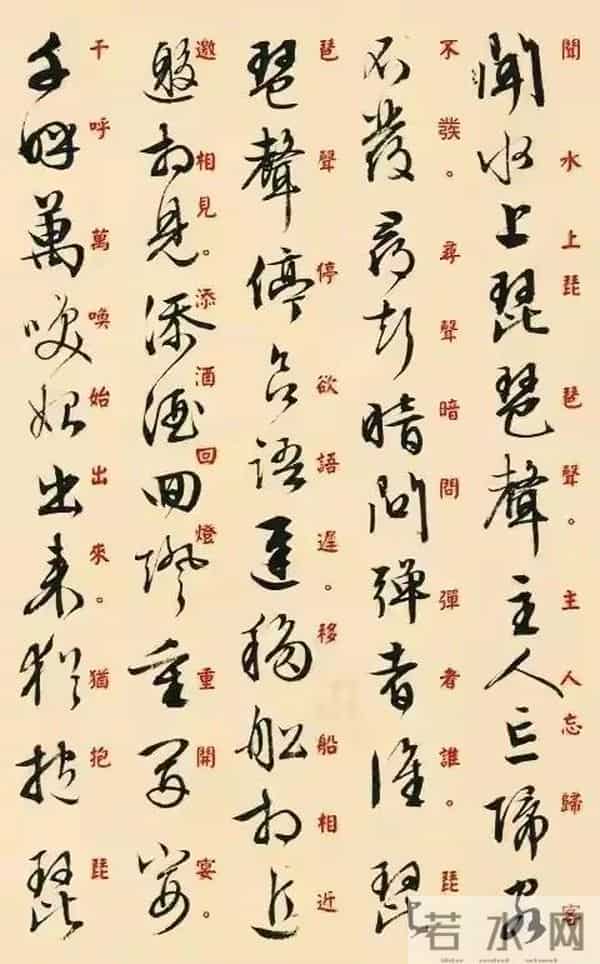 聞水上琵琶聲。主人忘歸客
聞水上琵琶聲主人忘歸客
不發。尋聲暗問彈者誰。琵
不發尋聲暗問彈者誰琵
琶聲停欲語遲。移船相近
琶聲停欲語遲移船相近
邀相見。添酒回燈重開宴。
邀相見添酒回燈重開宴
千呼萬喚始出來。猶抱琵
千呼萬喚始出來猶抱琵
若水网